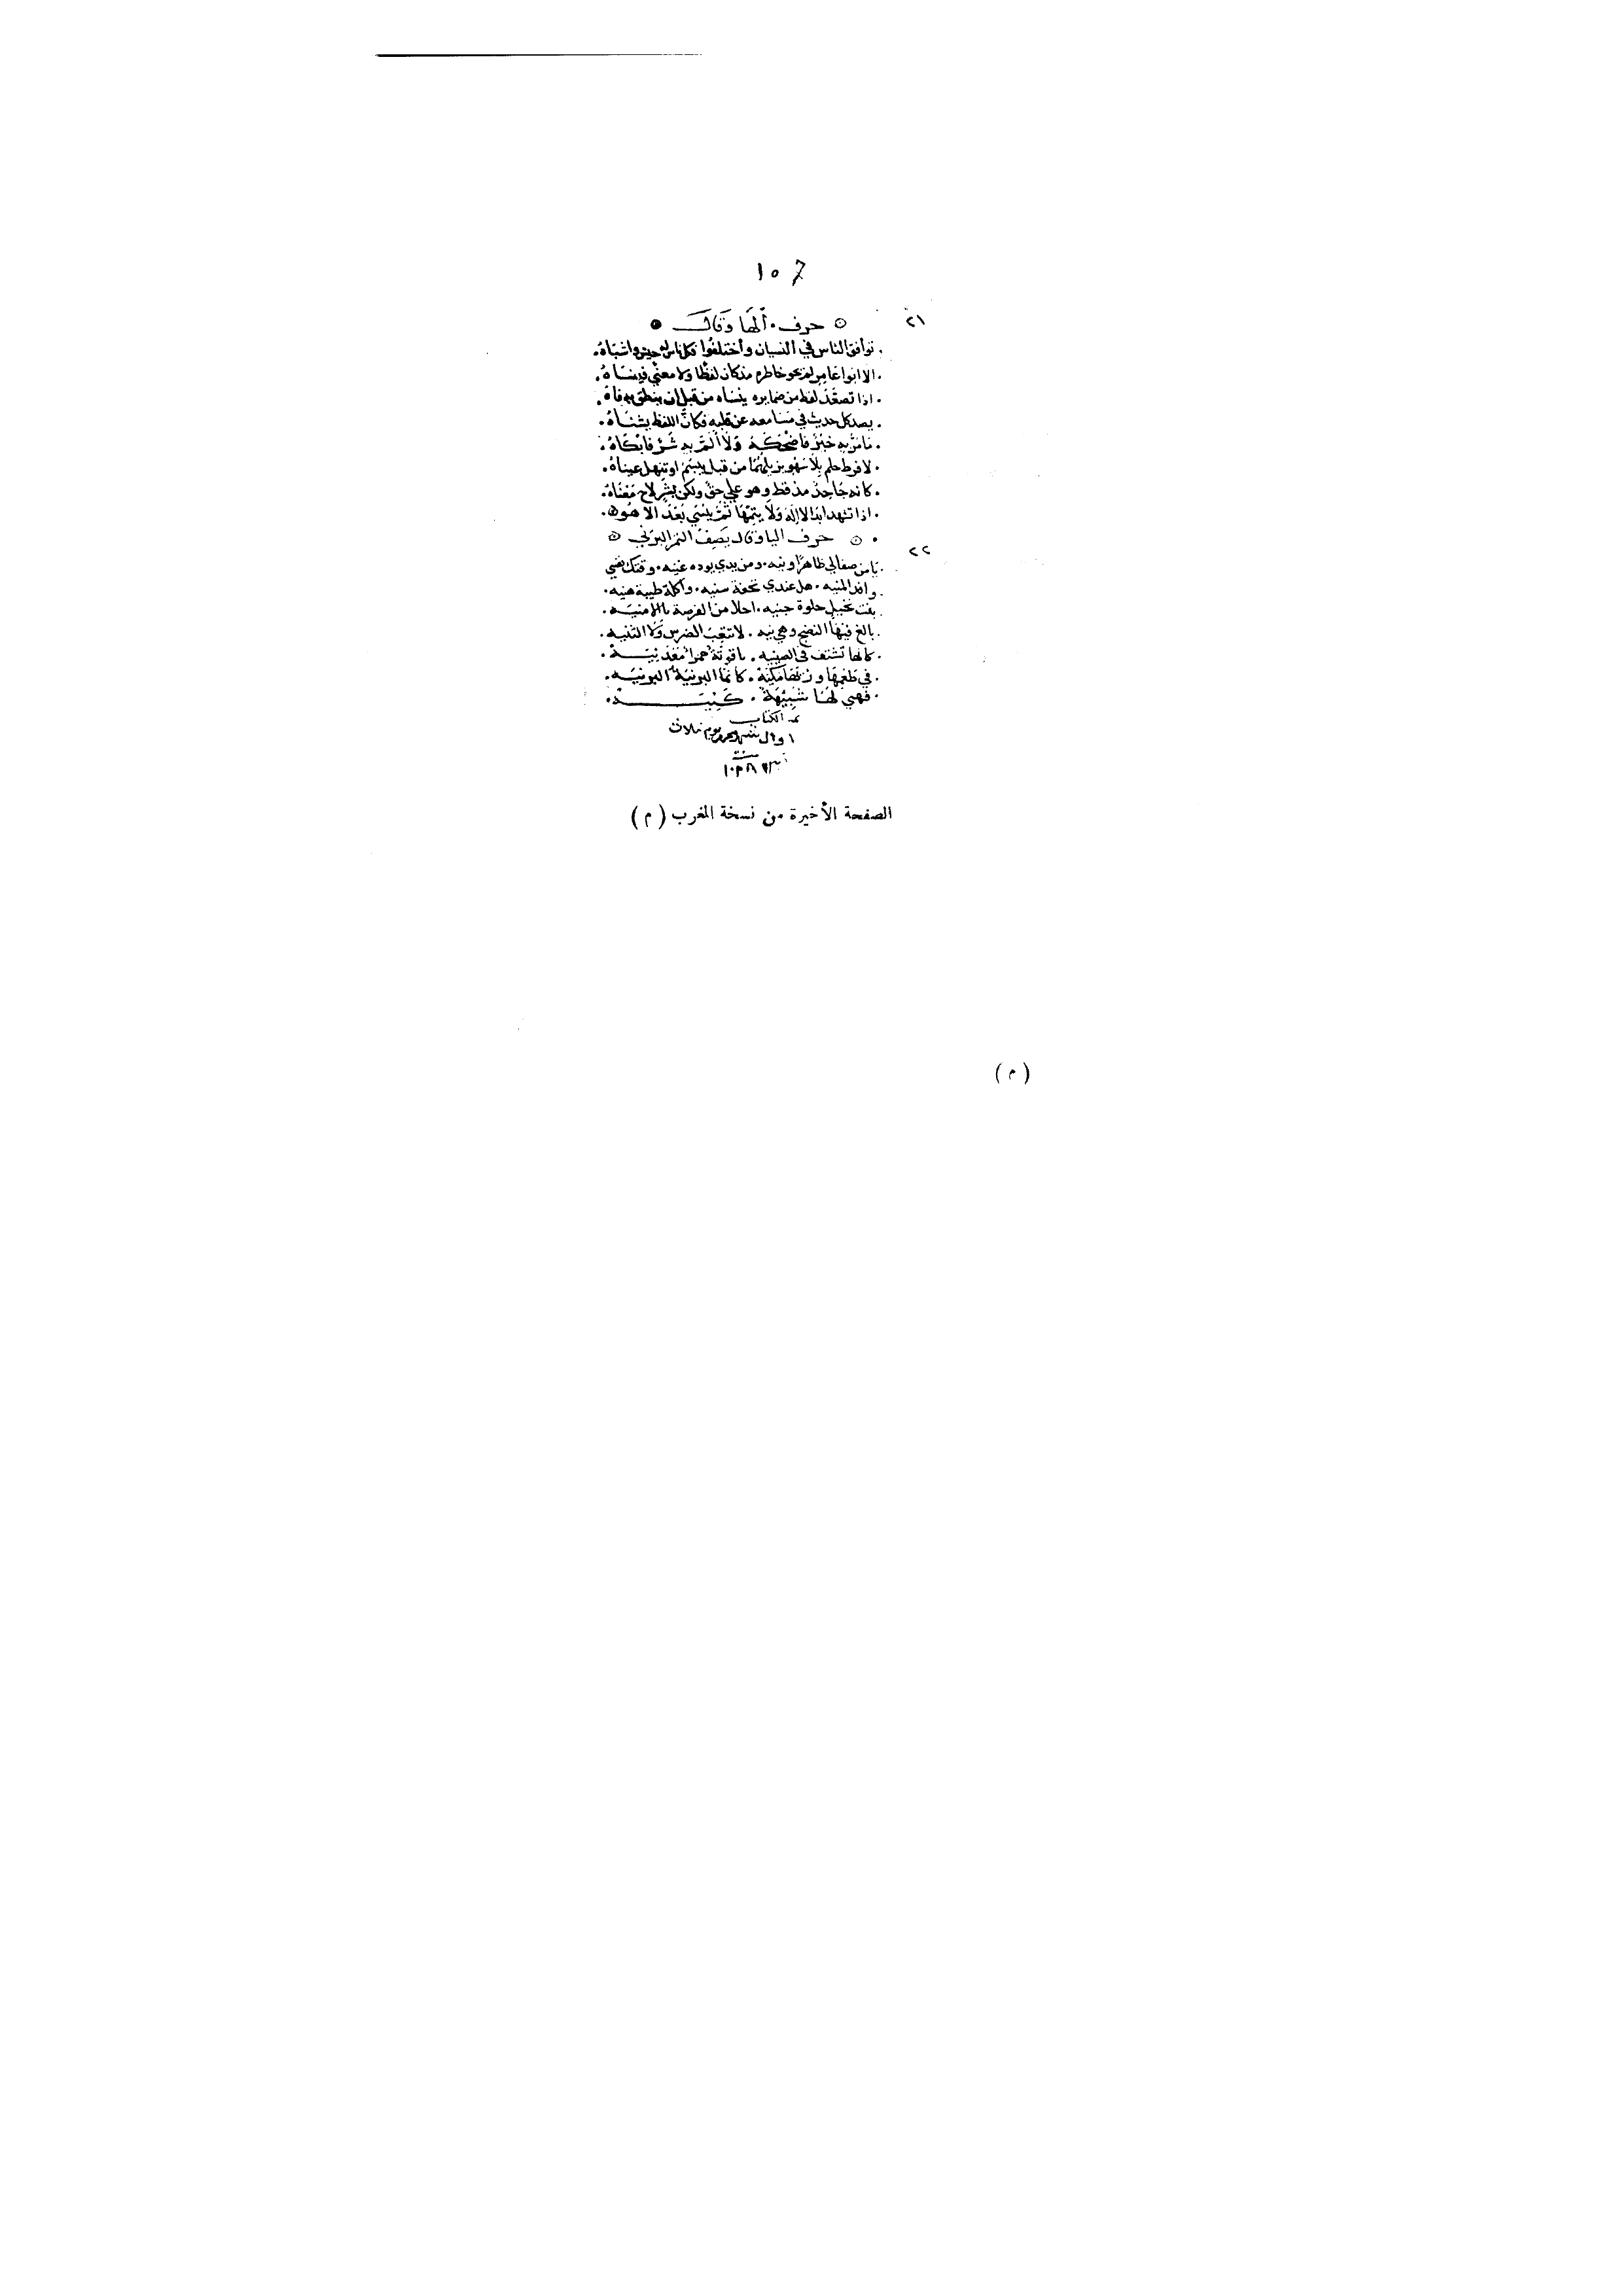 ١٠٦
٢١
حرف الها وقال
توافق الناس في النسيان واختلفوا فكل ناس له حين واشباه
الا ابوا عامر لم يحو خاطره مذ كان لفظا ولا معني فينساه
اذا تصعد لفظ من ضمايره ينساه من قبل ان ينطق به فاه
يصد كل حديث في مسامعه عن قلبه فكان اللفظ يشناه
مامر به خبر فاضحكه ولا الم به شر فابكاه
لا فرط حلم بلا سهو من قبل يبسم او تنهل عيناه
كانه جاحد مذ قط وهو علي حق ولكن لاح معناه
اذا تشهد ابدا لا اله ولا يتمها ثم ينسي بعد الا هو
٢٢
حرف اليا وقال يصف التمر البرني
يا من صفا لي ظاهرا ونيه ومن يدي بوده غنيه وفتك
وافد المنيه هل عندي تحفة سنيه واكلة طيبة هنيه
بنت نخيل حلوة جنيه احلا من الفرصة بالامنيه
بالغ فيها النضج وهي نيه لا تتعب الضرس ولا الثنيه
كانها تشتف في الصينيه ياقوتة حمرا معدنيه
في طعمها و كانما البرنية البرنيه
فهي لها شبيهة كنيه
تم الكتاب
اوال شهر يوم ثلاث
سنة
الصفحة الأخيرة من نسخة المغرب ( م )
( م )